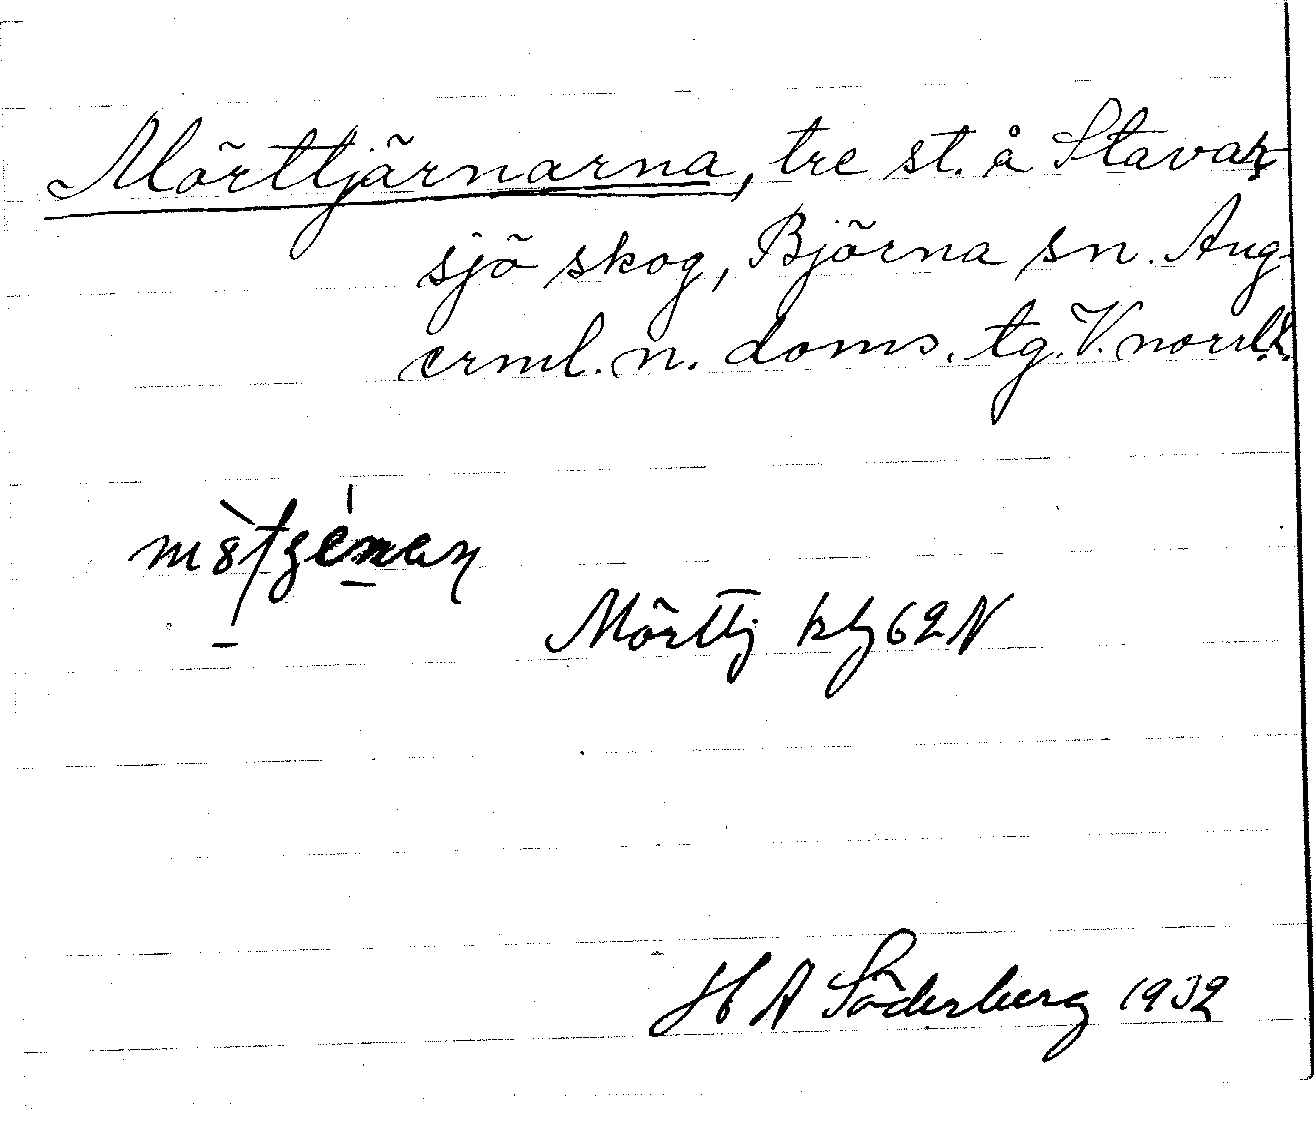 Mörttjärnarna, tre st. å Stavar-
sjö skog, Björna sn. Ång-
erml. n. doms. tg. V. norrl. l.
Mörttj kbj 62 N
H A Söderberg 1932